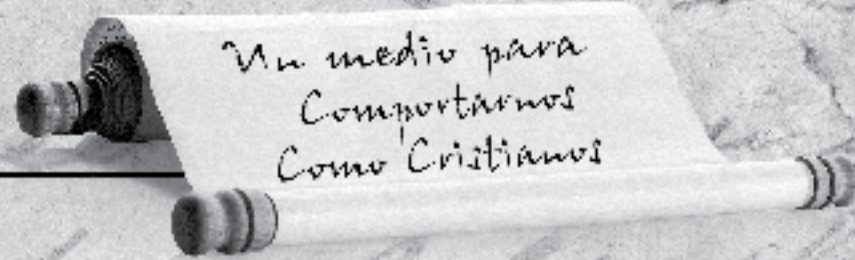 Un medio para
Comportarnos
Como Cristianos